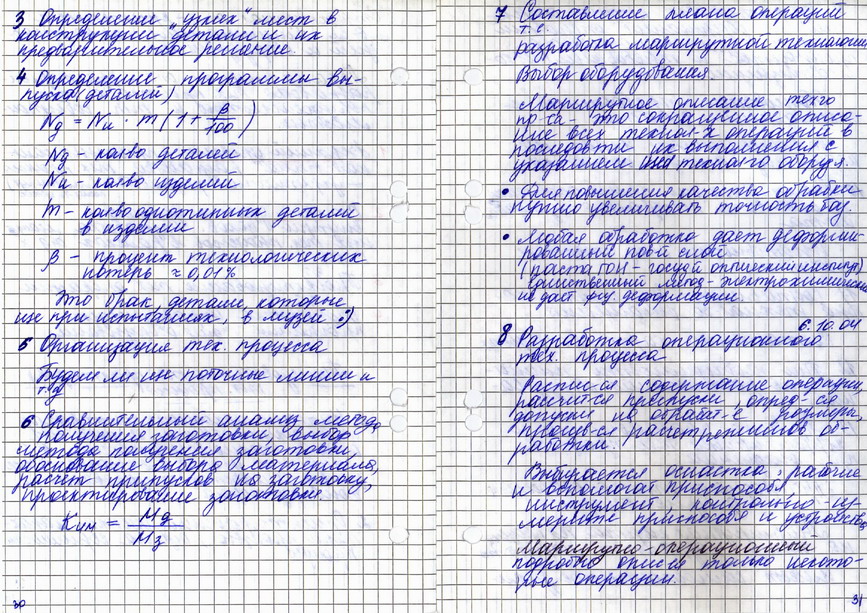 3 Определение "узких" мест в
конструкции детали и их
предварительное решение.
4 Определение программы вы-
пуска (деталей)
Nд = Nи · m (1 + β/100)
Nд - кол-во деталей
Nи - кол-во изделий
m - кол-во однотипных деталей
в изделии
β - процент технологических
потерь ≈ 0,01%
Это брак, детали, которые
исп при испытаниях, в музей :)
5 Организация тех. процесса
Будем ли исп поточные линии и
т.д
6 Сравнительный анализ метод.
получения заготовки, выбор
метода получения заготовки,
обоснование выбора материала,
расчет припусков на заготовку,
проектирование заготовки.
Ким = Mд/Mз
30
7 Составление плана операций
т.е.
разработка маршрутной технологии
Выбор оборудования
Маршрутное описание техго
пр-са - это сокращенное описа-
ние всех технол-х операций в
последовти их выполнения с
указанием технолго оборуд.
• Для повышения качества обрабки
нужно увеличивать точность баз.
• Любая обработка даст деформи-
рованный повй слой
(паста ГОИ - госуд оптический институт)
Единственный метод - электрохимический
не даст физ. деформации.
6.10.04
8 Разработка операционного
тех. процесса
Распися содержание операции,
рассчится припуски, опред-ся
допуски на обработ-е размеры,
произв-ся расчет режимов об-
работки.
Выбирается оснастка: рабочие
и вспомогат приспособя
инструмент, контрольно-из-
мерите приспособя и устройства
Маршрутно-операционный
подробно описся только некото-
рые операции.
31